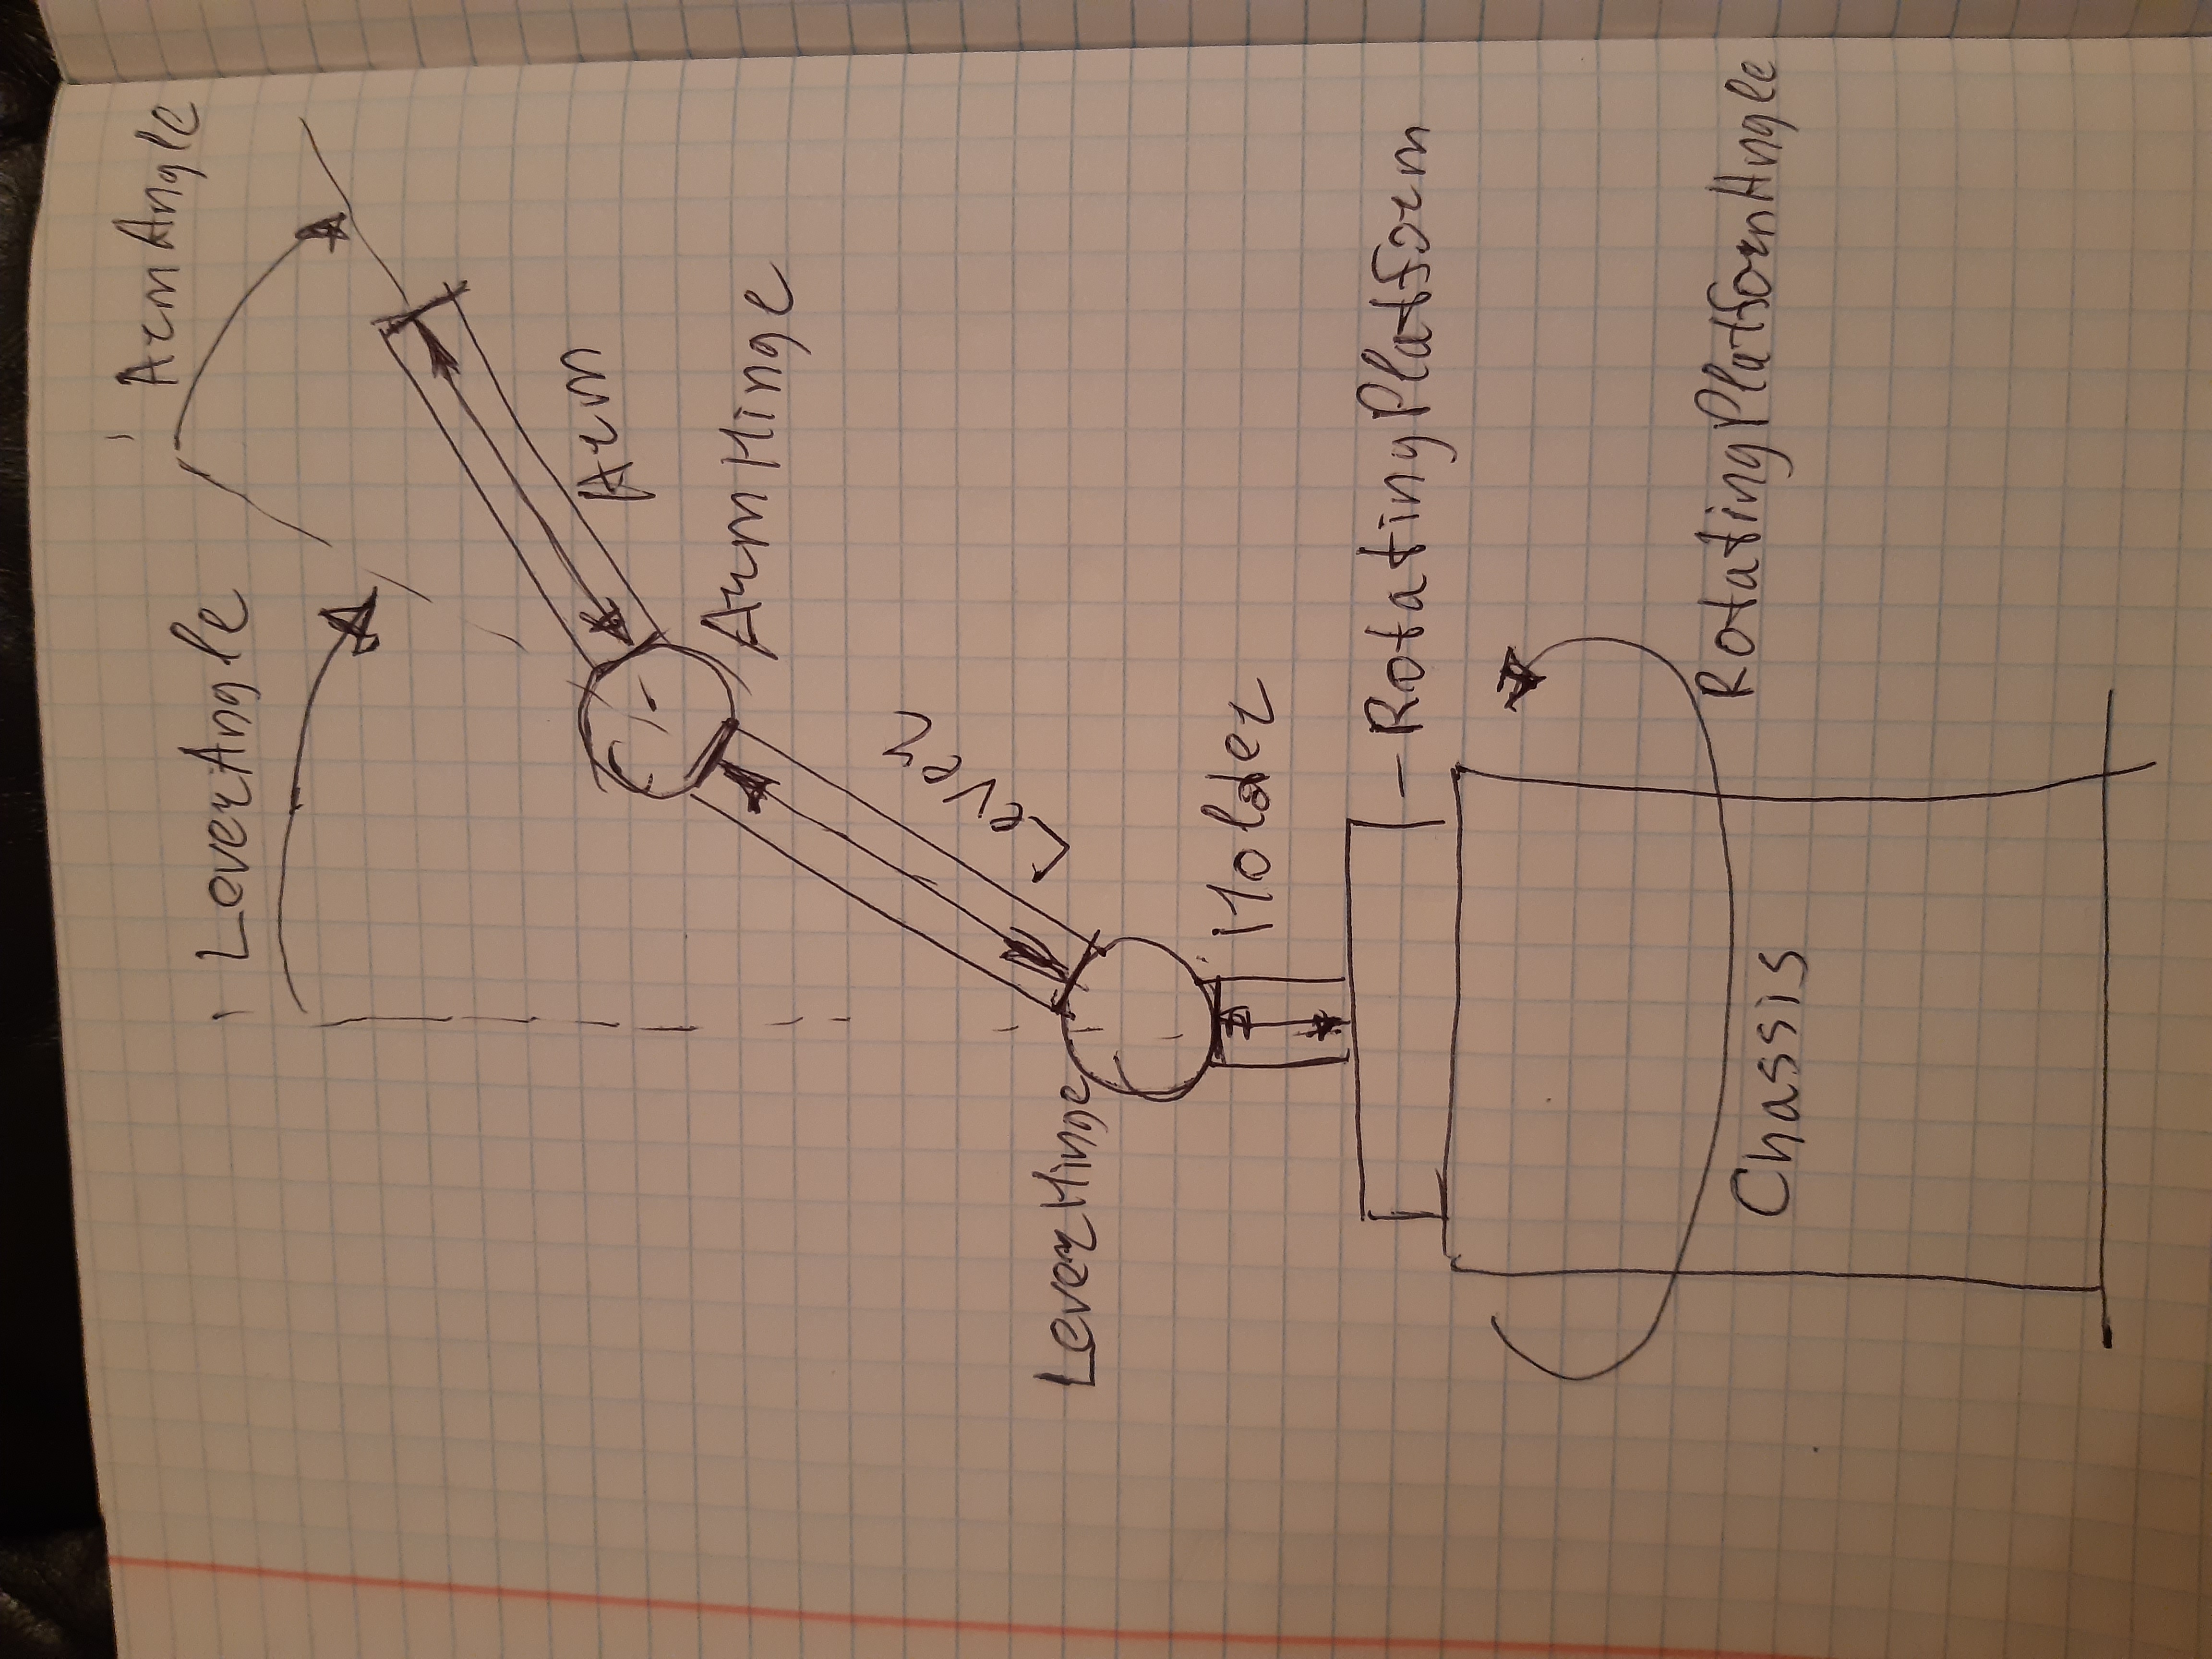 ArmAngle
LeverAngle
Arm
ArmHinge
Lever
LeverHinge
Holder
RotatingPlatform
RotatingPlatformAngle
Chassis